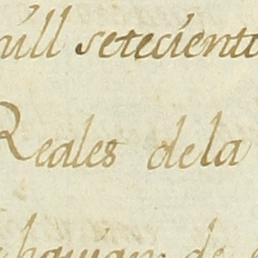 mill seteciento
Reales dela
de